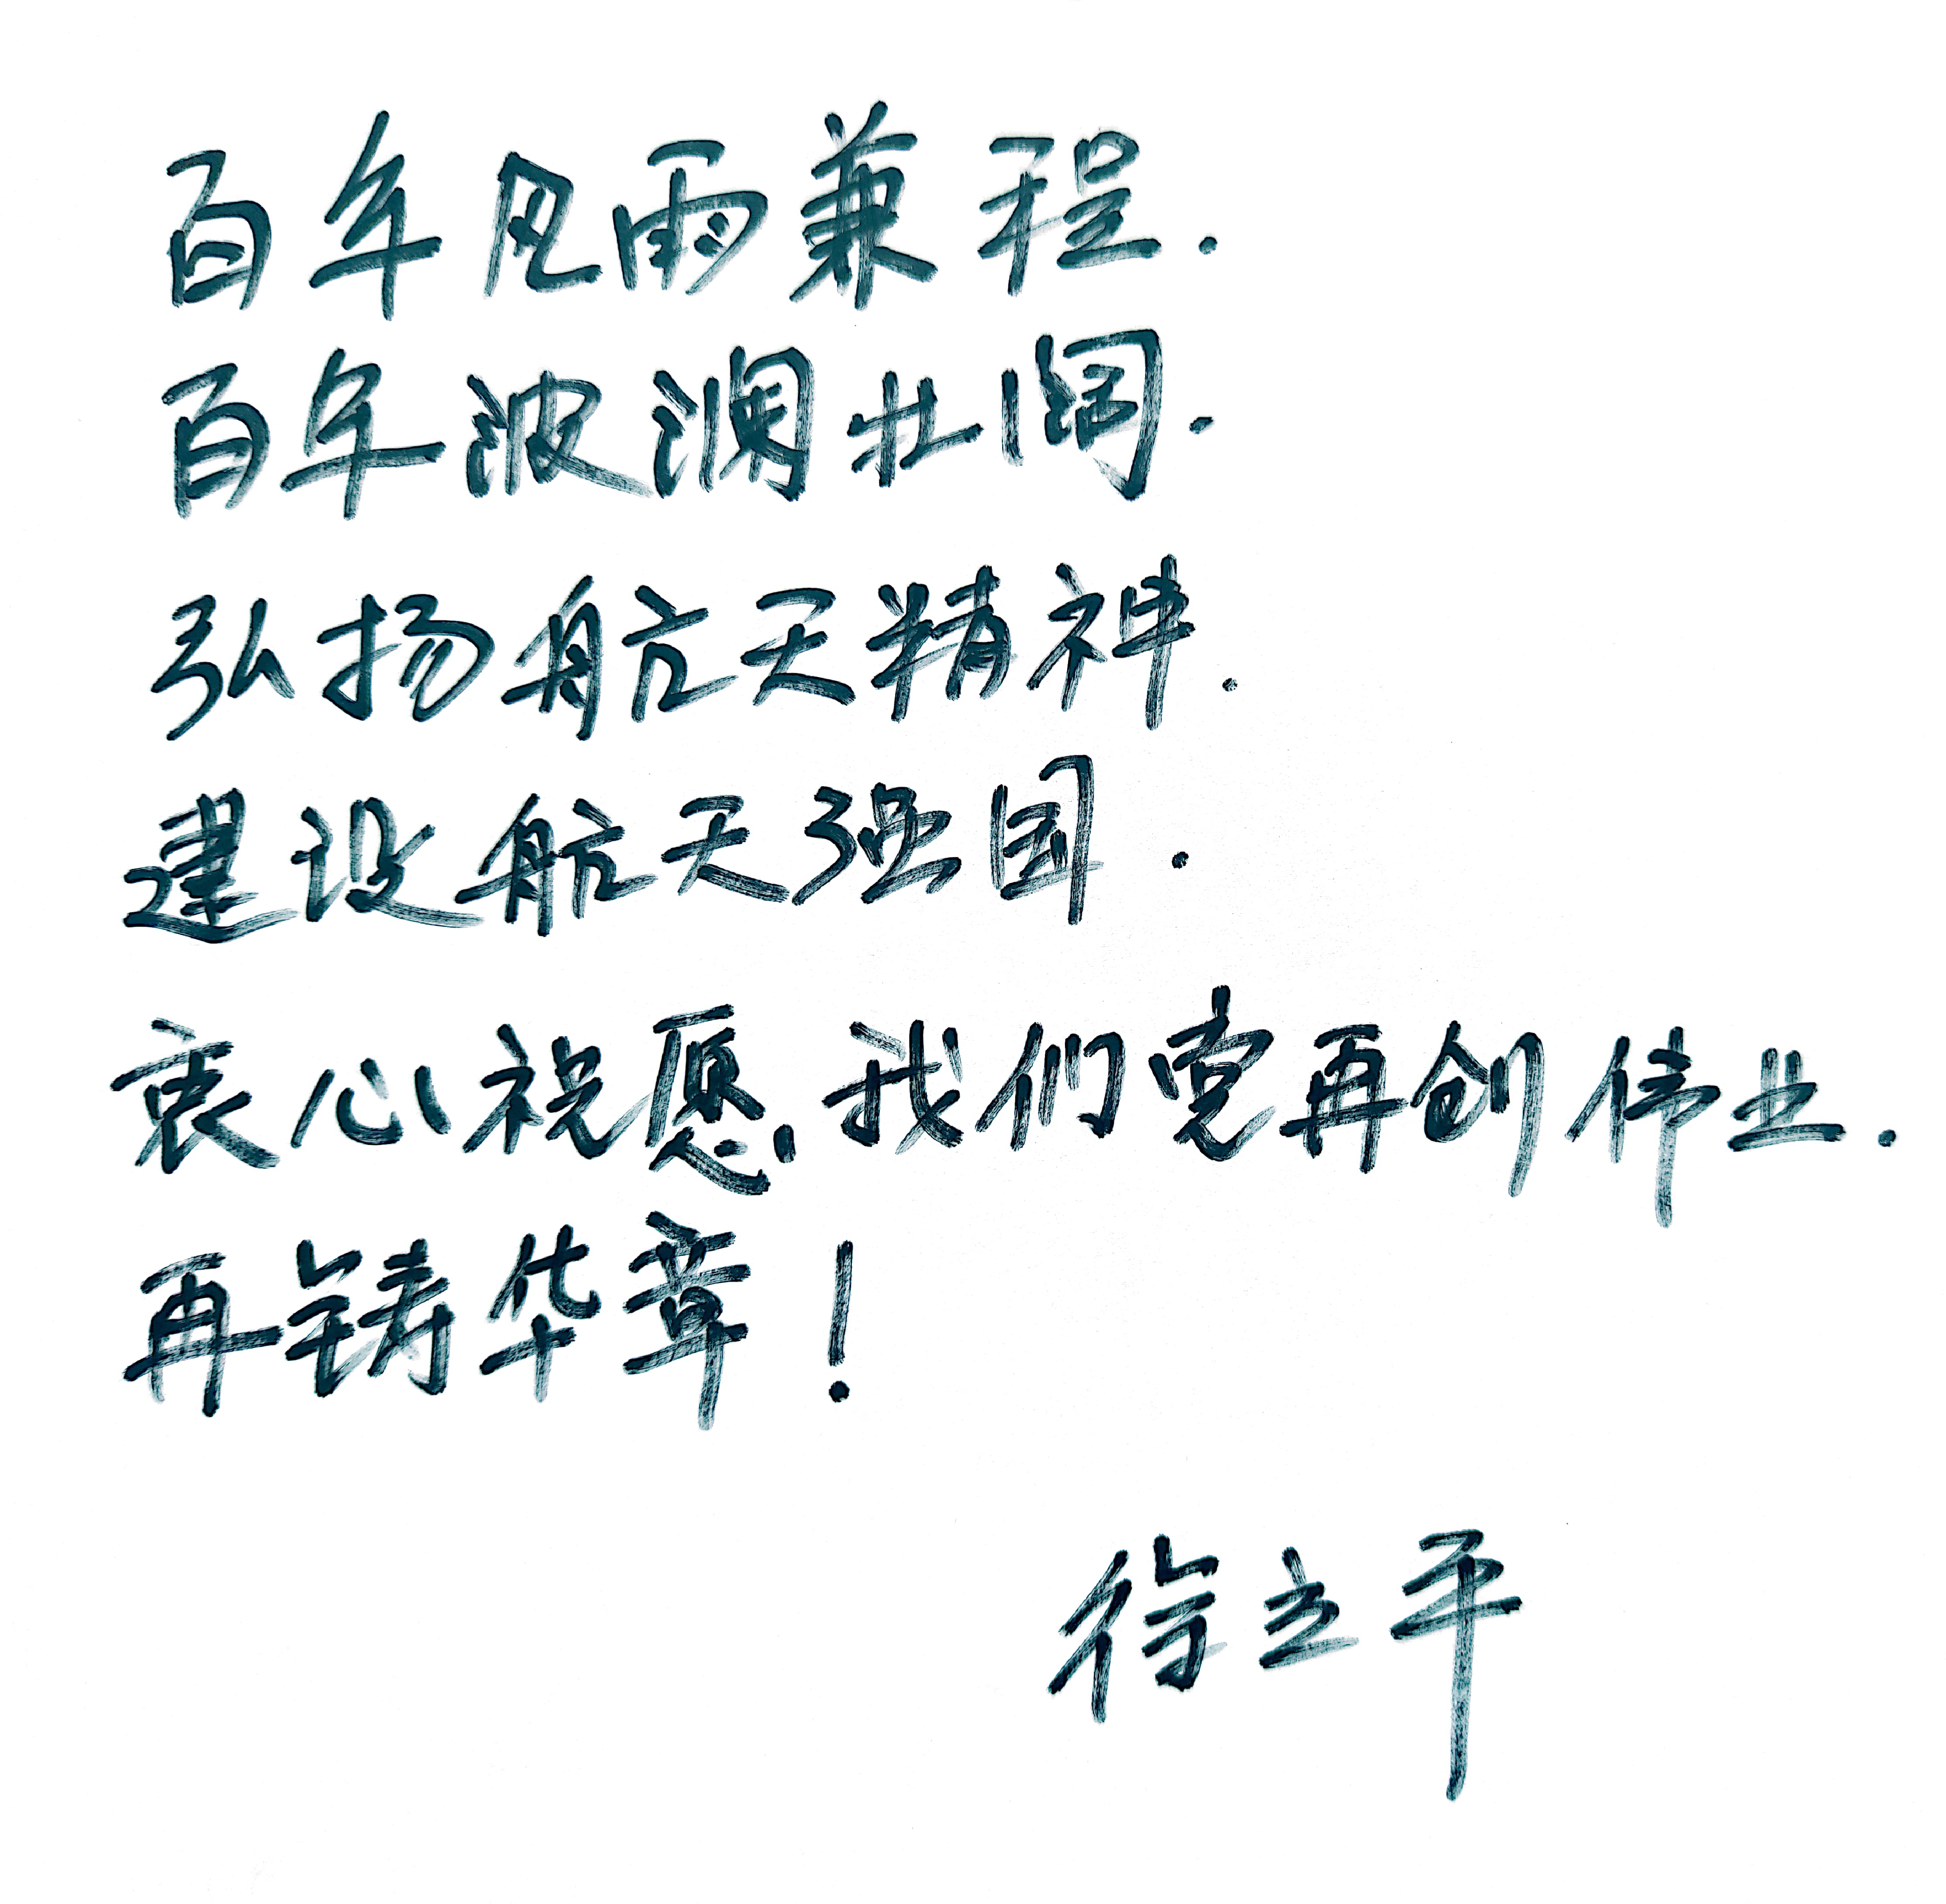 百年风雨兼程.
百年波澜壮阔.
弘扬航天精神.
建设航天强国.
衷心祝愿我们党再创伟业.
再铸华章!
徐立平